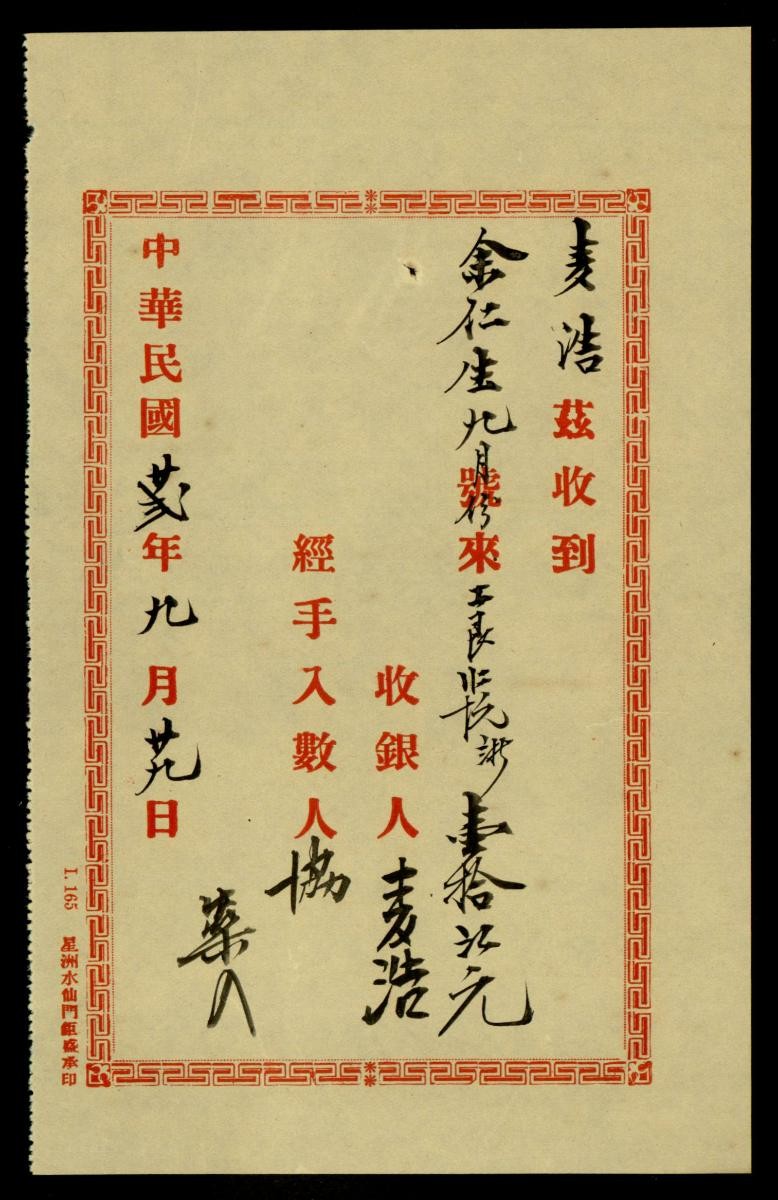 麦浩茲收到
余仁生九月份號來工良 壹拾元
收銀人麦浩
經手入數人協
中華民國廿九年九月廿九日
I. 165 星洲水仙門鉅盛承印